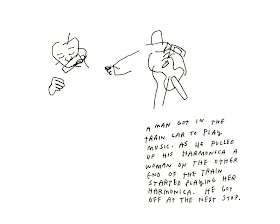 A MAN GOT IN THE
TRAIN CAR TO PLAY
MUSIC. AS HE PULLED
UP HIS HARMONICA A
WOMAN ON THE OTHER
END OF THE TRAIN
STARTED PLAYING HER
HARMONICA. HE GOT
OFF AT THE NEXT STOP.